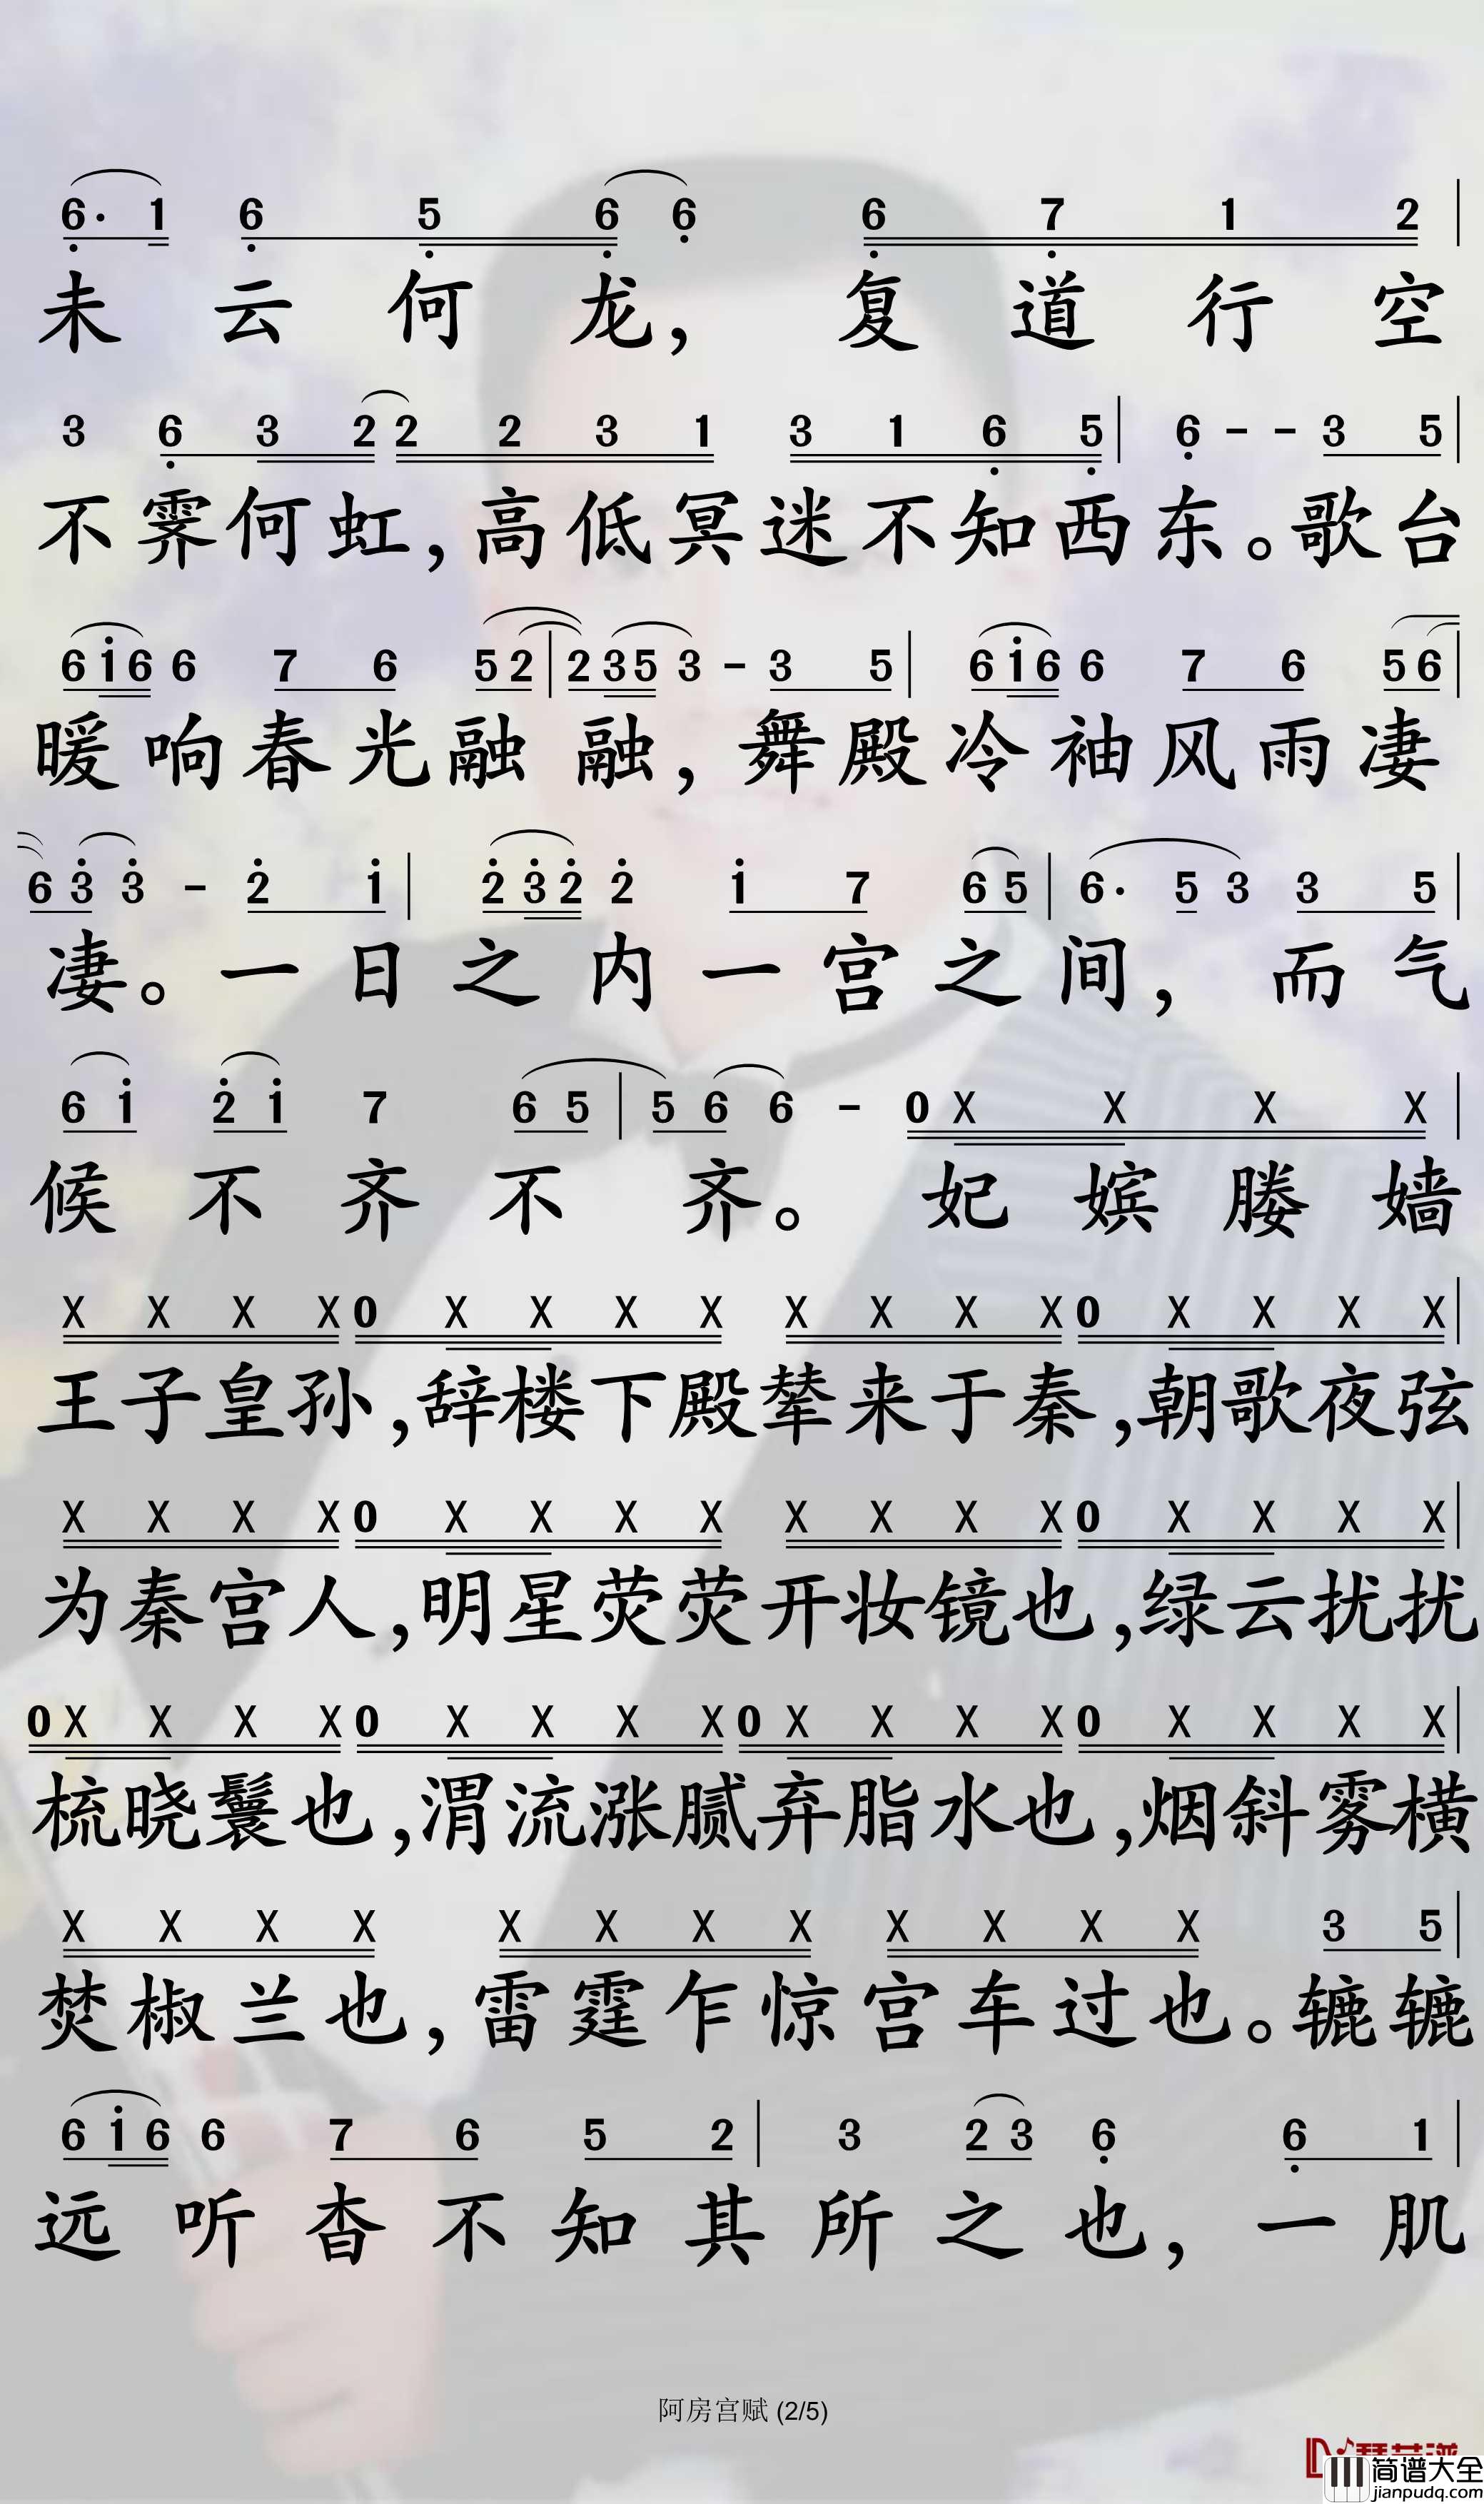 6· 1 6 5 6 6 6 7 1 2
未云何龙，复道行空
3 6 3 2 2 2 3 1 3 1 6 5 6 - - 3 5
不霁何虹，高低冥迷不知西东。歌台
6 1 6 6 7 6 5 2 2 3 5 3 - 3 5 6 1 6 6 7 6 5 6
暖响春光融融，舞殿冷袖风雨凄
6 3 3 - 2 1 2 3 2 2 1 7 6 5 6· 5 3 3 5
凄。一日之内一宫之间，而气
6 1 2 1 7 6 5 5 6 6 - 0 X X X X
候不齐不齐。妃嫔媵嫱
X X X X 0 X X X X X X X X 0 X X X X
王子皇孙，辞楼下殿辇来于秦，朝歌夜弦
X X X X 0 X X X X X X X X 0 X X X X
为秦宫人，明星荧荧开妆镜也，绿云扰扰
0 X X X X 0 X X X X 0 X X X X 0 X X X X
梳晓鬟也，渭流涨腻弃脂水也，烟斜雾横
X X X X X X X X X X X X 3 5
焚椒兰也，雷霆乍惊宫车过也。辘辘
6 1 6 6 7 6 5 2 3 2 3 6 6 1
远听杳不知其所之也，一肌
阿房宫赋 (2/5)
简谱大全
jianpudq.com